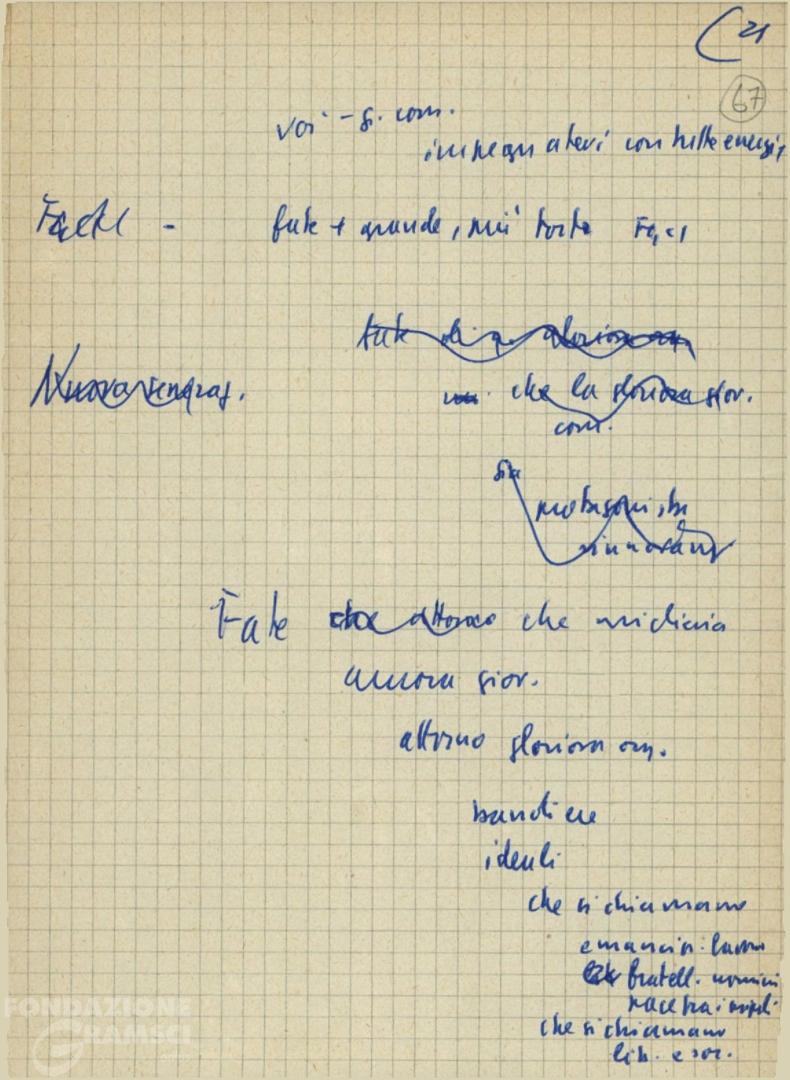 21
67
voi - gi. com.
impegnatevi con tutte energie
FGCI - fate + grande, più forte FGCI
fate di q. gloriosa org.
Nuova generaz. che la gloriosa gior.
com.
sia
protagonista
rinnovam
Fate che attorno che si dicia
ancora gior.
attorno gloriosa org.
bandiere
ideali
che si chiamano
emancip. lavoro
fratell. uomini
pace tra i popoli
che si chiamano
lib. e soc.
FONDAZIONE
GRAMSCI